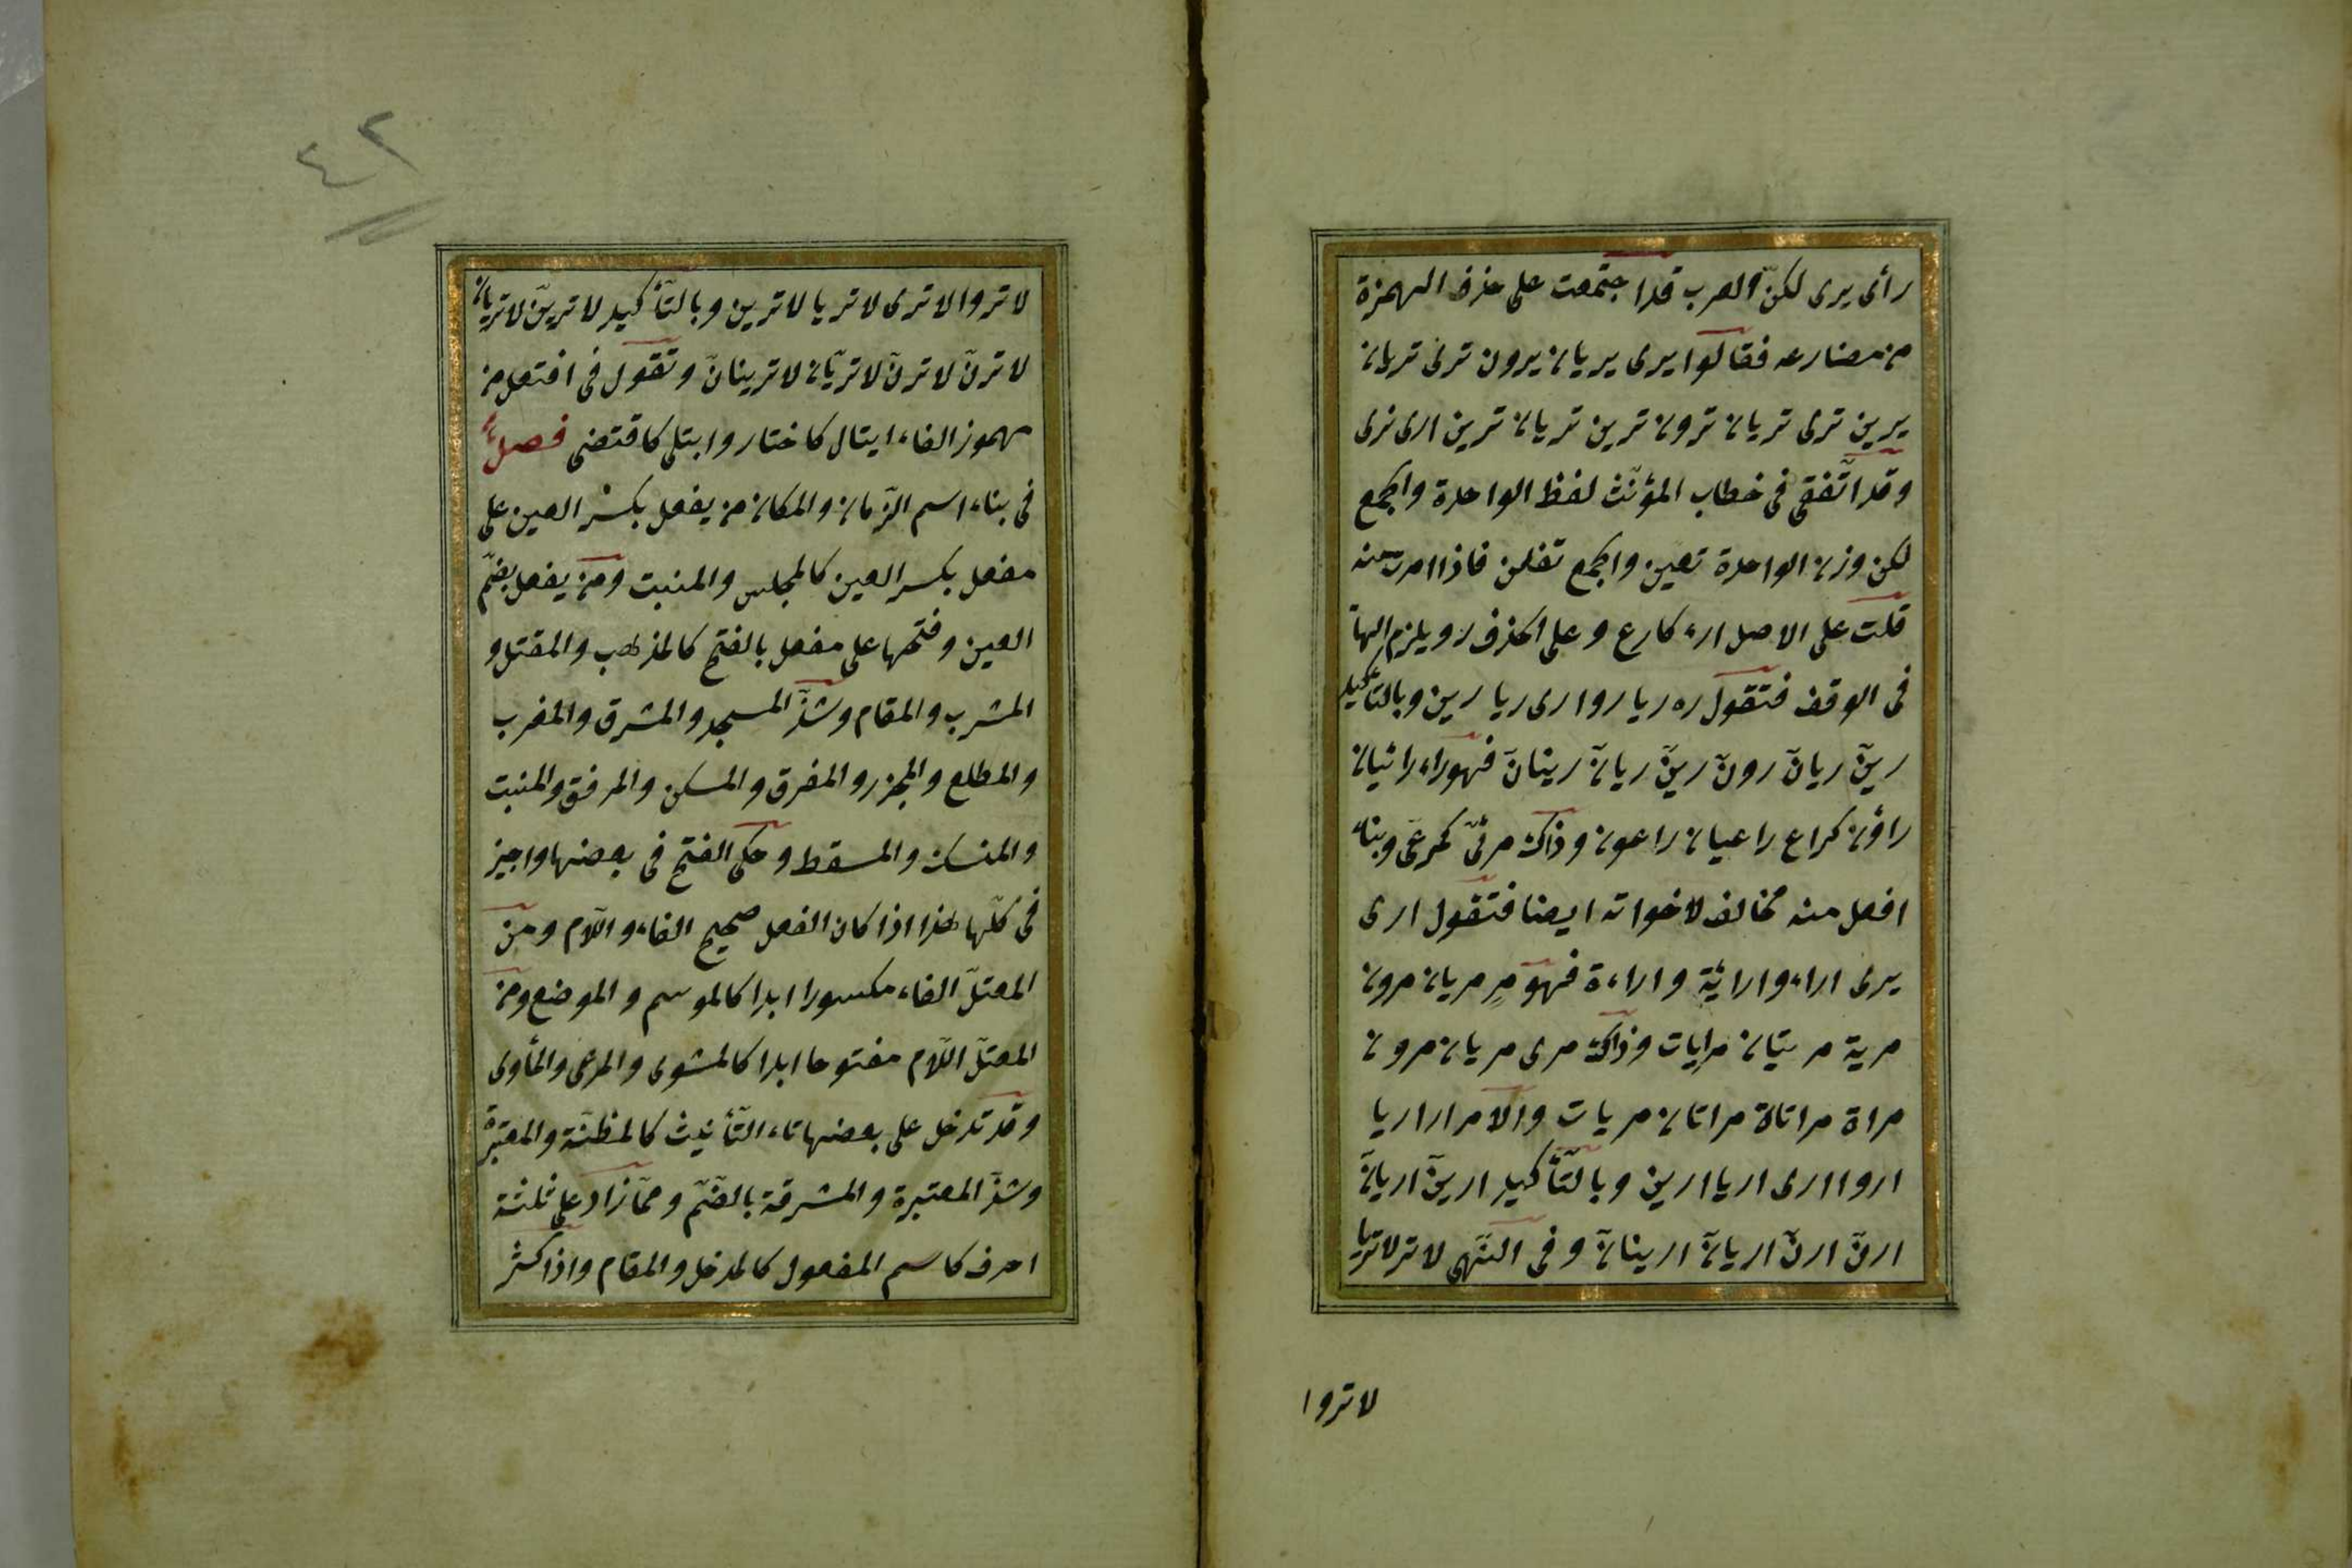 رأى يرى لكنّ العرب قد اجتمعت على حذف الهمزة
من مضارعه فقالوا يرى يريان يرون ترى تريان
يرين ترى تريان ترون ترين تريان ترين ارى نرى
وقد اتّفق فى خطاب المؤنّث لفظ الواحدة والجمع
لكن وزن الواحدة تفين والجمع تفلن فاذا امرت منه
قلت على الاصل ارء كارع وعلى الحذف ر ويلزم الهاء
فى الوقف فتقول ره ريا روا رى ريا رين وبالتأكيد
رينّ ريانّ رونّ رينّ ريانّ رينانّ فهو راء رائيان
راؤن كراع راعيان راعون وذاك مرئىّ كمرعىّ وبناء
افعل منه مخالف لاخواته ايضا فتقول ارى
يرى اراء وارائة واراءة فهو مرٍ مريان مرون
مرية مريتان مرايات وذاك مرى مريان مرون
مراة مراتاة مراتان مريات والامر ار اريا
اروا ارى اريا ارين وبالتّأكيد ارينّ اريانّ
ارنّ ارنّ اريانّ ارينانّ وفى النّهى لا تر لا تريا
لا تروا
٤٢
لا تروا لا ترى لا تريا لا ترين وبالتّأكيد لا ترينّ لا تريانّ
لا ترنّ لا ترنّ لا تريّان لا ترينانّ وتقول فى افتعل من
مهموز الفاء ايتال كاختار وابتلى كاقتضى فصل
فى بناء اسم الزّمان والمكان من يفعل بكسر العين على
مفعل بكسر العين كالمجلس والمنبت ومن يفعل بضمّ
العين وفتحها على مفعل بالفتح كالمذهب والمقتل و
المشرب والمقام وشذّ المسجد والمشرق والمغرب
والمطلع والمجزر والمفرق والمسكن والمرفق والمنبت
والمنسك والمسقط وحكى الفتح فى بعضها واجيز
فى كلّها هذا اذا كان الفعل صحيح الفاء واللّام ومن
المعتلّ الفاء مكسورا ابدا كالموسم والموضع ومن
المعتلّ اللّام مفتوحا ابدا كالمشوى والمرمى والمأوى
وقد تدخل على بعضها تاء التّأنيث كالمظنّة والمقبرة
وشذّ المعتبرة والمشرقة بالضّمّ وممّا زاد على ثلثة
احرف كاسم المفعول كالمدخل والمقام واذا كثر